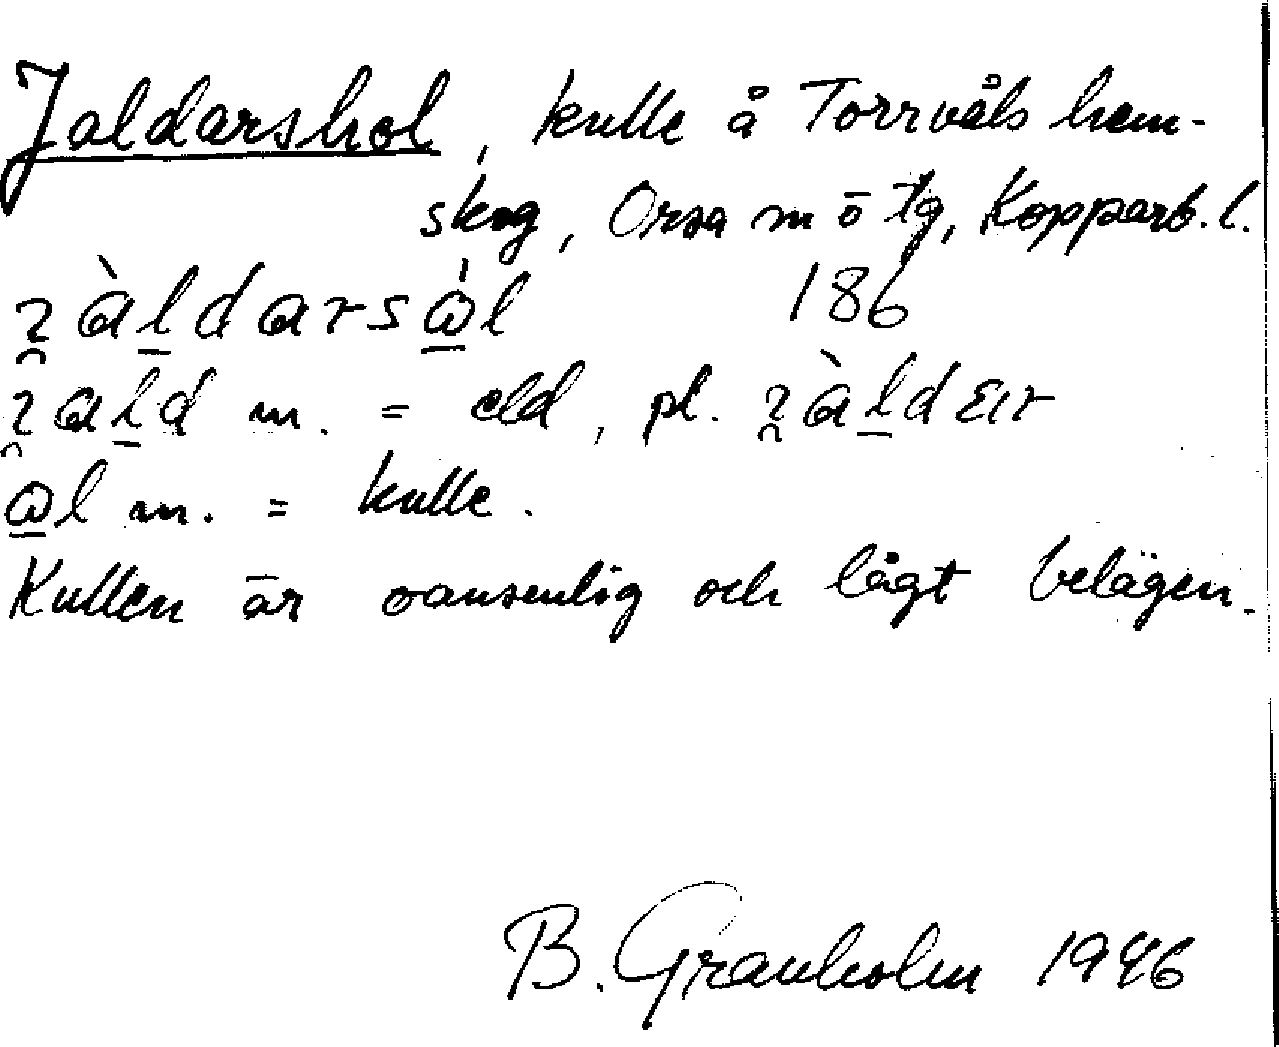 Jaldarshol, kulle å Torrvåls hem-
skog, Orsa m ö tg, Kopparb. l.
ʒ̯àl̠darsὼ̠l 186
ʒ̯al̠d m. = eld, pl. ʒ̯àl̠dɛır
ω̠l m. = kulle.
Kullen är oansenlig och lågt belägen.
B. Granholm 1946